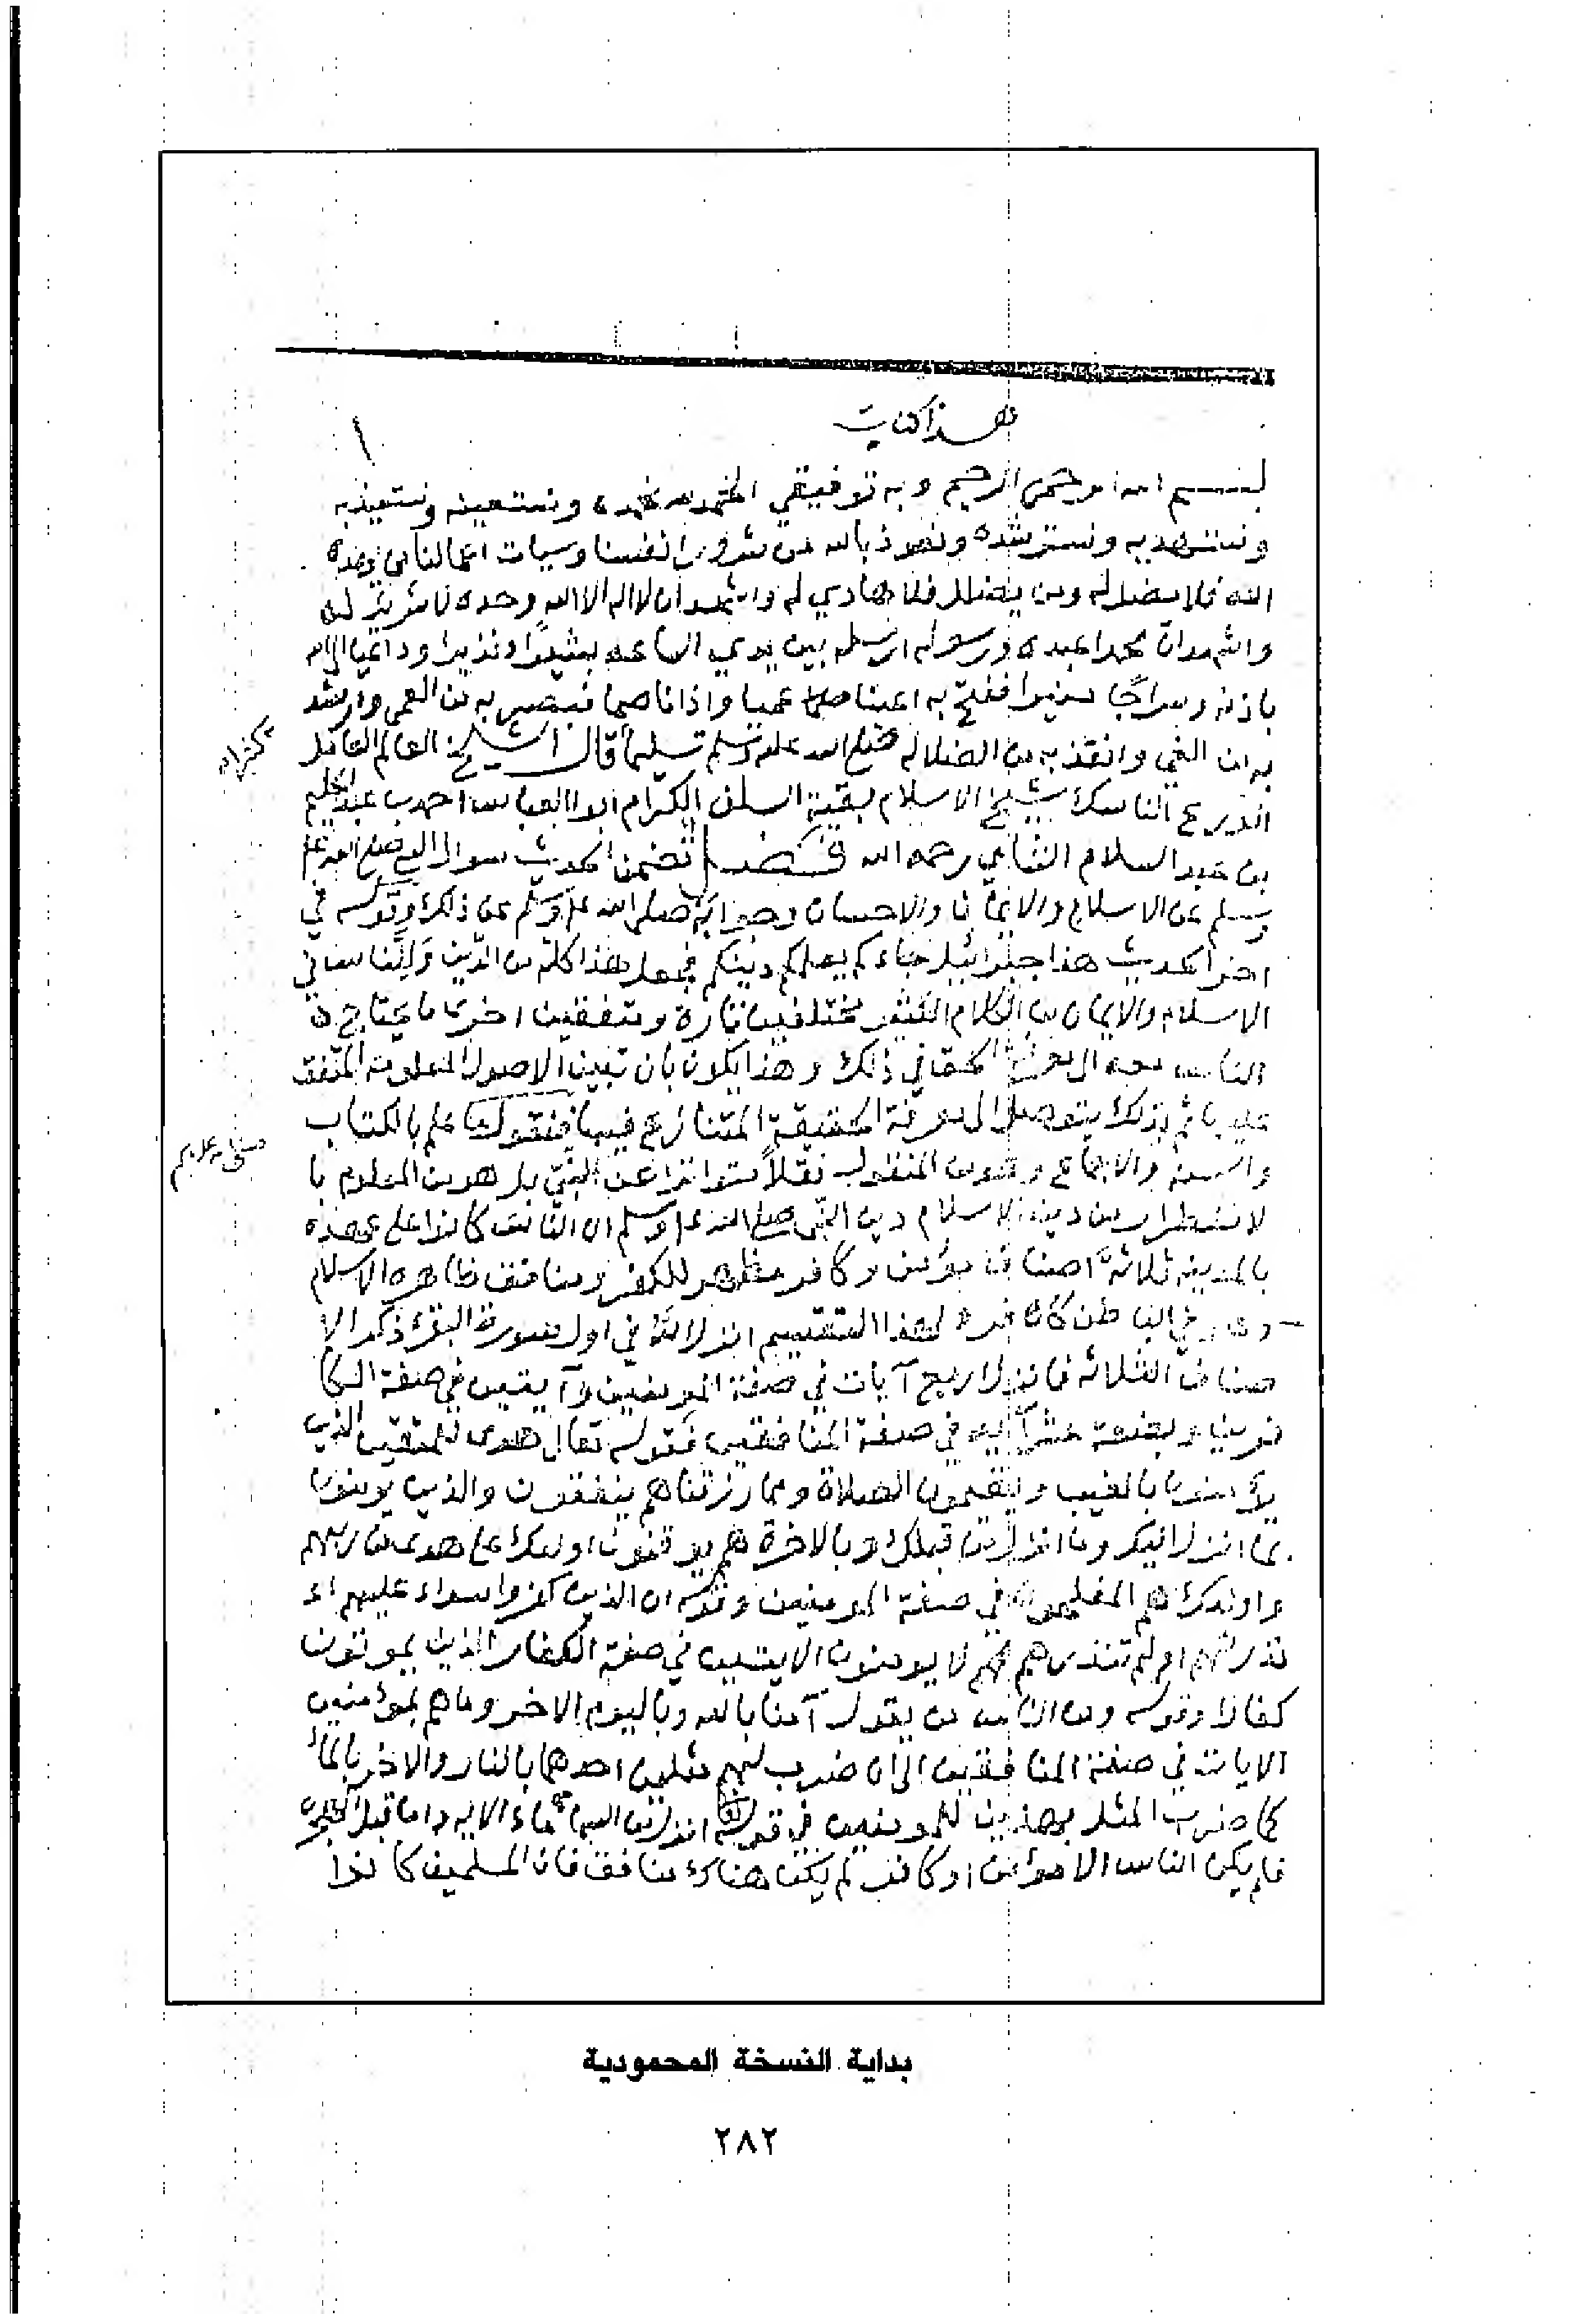 هذا كتاب
١
بسم الله الرحمن الرحيم وبه توفيقي الحمد لله نحمده ونستعينه ونستعيذ به
ونستهديه ونسترشده ونعوذ بالله من شرور انفسنا وسيات اعمالنا من يهده
الله فلا مضل له ومن يضلل فلا هادي له واشهد ان لا اله الا الله وحده لا شريك له
واشهد ان محمدا عبده ورسوله ارسله بين يدي الساعه بشيرا ونذيرا وداعيا الى الله
باذنه وسراجا منيرا ففتح به اعينا عميا واذانا صما فبصر به من العمى وارشد
به من الغي وانقذ به من الضلاله صلى الله عليه وسلم تسليما قال الشيخ العالم العامل
الورع الناسك شيخ الاسلام بقية السلف الكرام ابو العباس احمد بن عبد الحليم
بن عبد السلام الشامي رحمه الله فصل تضمن الحديث سوال النبي صلى الله عليه
وسلم عن الاسلام والايمان والاحسان وجوابه صلى الله عليه وسلم عن ذلك وقوله في
اخر الحديث هذا جبرائيل جاءكم يعلمكم دينكم فجعل هذا كله من الدين وللناس في
الاسلام والايمان من الكلام الكثير مختلفين تارة ومتفقين اخرى ما يحتاج
الناس معه الى معرفة الحق في ذلك وهذا يكون بان تبين الاصول المعلومة المتفق
عليها ثم بذلك يتوصل الى معرفة الحقيقة المتنازع فيها فنقول ما علم بالكتاب
والسنه والاجماع وهو من المنقول نقلا متواترا عن النبي بل هو من المعلوم با
لاضطرار من دين الاسلام دين النبي صلى الله عليه وسلم ان الناس كانوا على عهده
بالمدينه ثلاثة اصناف مؤمن وكافر مظهر للكفر ومنافق ظاهره الاسلام
وهو في الباطن كافر ولهذا التقسيم انزل الله في اول سورة البقرة ذكر الا
صناف الثلاثه فانزل اربع آيات في صفة المومنين وآيتين في صفة الكا
فرين وبضعة عشر آيه في صفة المنافقين فقوله تعالى هدى للمتقين الذين
يؤمنون بالغيب ويقيمون الصلاة ومما رزقناهم ينفقون والذين يومنون
بما انزل اليك وما انزل من قبلك وبالاخرة هم يوقنون اولئك على هدى من ربهم
واولئك هم المفلحون في صفة المومنين وقوله ان الذين كفروا سواء عليهم اء
نذرتهم ام لم تنذرهم لا يومنون الايتين في صفة الكفار الذين يموتون
كفارا وقوله ومن الناس من يقول آمنا بالله وباليوم الاخر وما هم بمؤمنين
الايات في صفة المنافقين الى ان ضرب لهم مثلين احدهما بالنار والاخر بالماء
كما ضرب المثل بهذين للمومنين في قوله انزل من السماء ماء الايه واما قبل الهجرة
فلم يكن الناس الا مؤمن او كافر لم يكن هناك منافق فان المسلمين كانوا
بداية النسخة المحمودية
٢٨٢